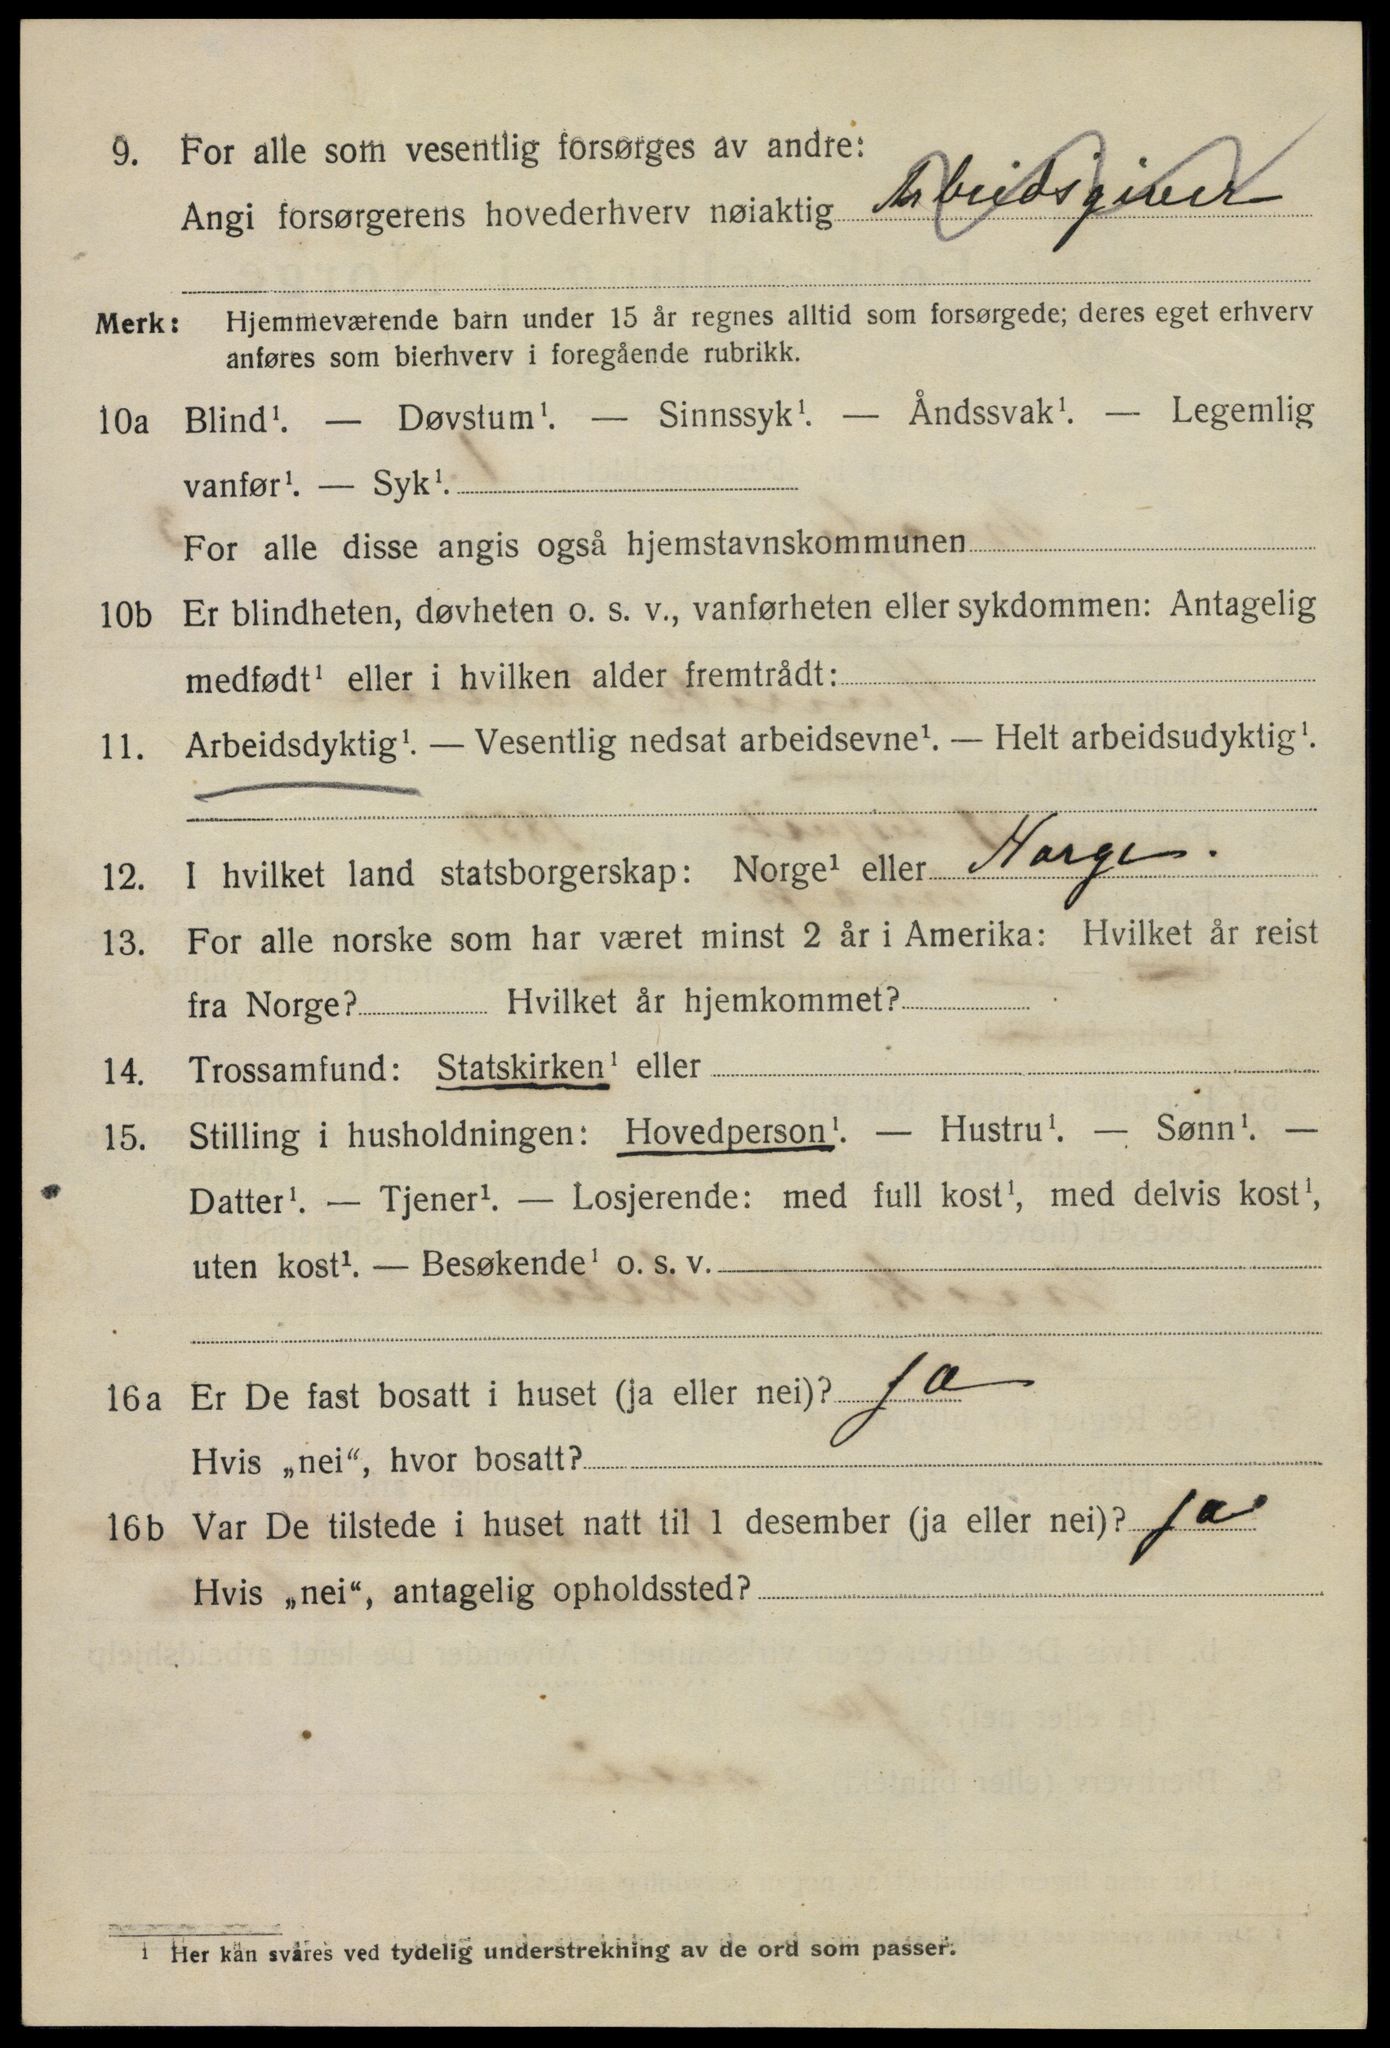 9. For alle som vesentlig forsørges av andre:
Angi forsørgerens hovederhverv nøiaktig Arbeidsgiver
Merk: Hjemmeværende barn under 15 år regnes alltid som forsørgede; deres eget erhverv
anføres som bierhverv i foregående rubrikk.
10a Blind¹. — Døvstum¹. — Sinnssyk¹. — Åndssvak¹. — Legemlig
vanfør¹. — Syk¹.
For alle disse angis også hjemstavnskommunen
10b Er blindheten, døvheten o. s. v., vanførheten eller sykdommen: Antagelig
medfødt¹ eller i hvilken alder fremtrådt:
11. Arbeidsdyktig¹. — Vesentlig nedsat arbeidsevne¹. — Helt arbeidsudyktig¹.
12. I hvilket land statsborgerskap: Norge¹ eller Norge.
13. For alle norske som har været minst 2 år i Amerika: Hvilket år reist
fra Norge? Hvilket år hjemkommet?
14. Trossamfund: Statskirken¹ eller
15. Stilling i husholdningen: Hovedperson¹. — Hustru¹. — Sønn¹. —
Datter¹. — Tjener¹. — Losjerende: med full kost¹, med delvis kost¹,
uten kost¹. — Besøkende¹ o. s. v.
16a Er De fast bosatt i huset (ja eller nei)? ja
Hvis „nei“, hvor bosatt?
16b Var De tilstede i huset natt til 1 desember (ja eller nei)? ja
Hvis „nei“, antagelig opholdssted?
¹ Her kan svares ved tydelig understrekning av de ord som passer.